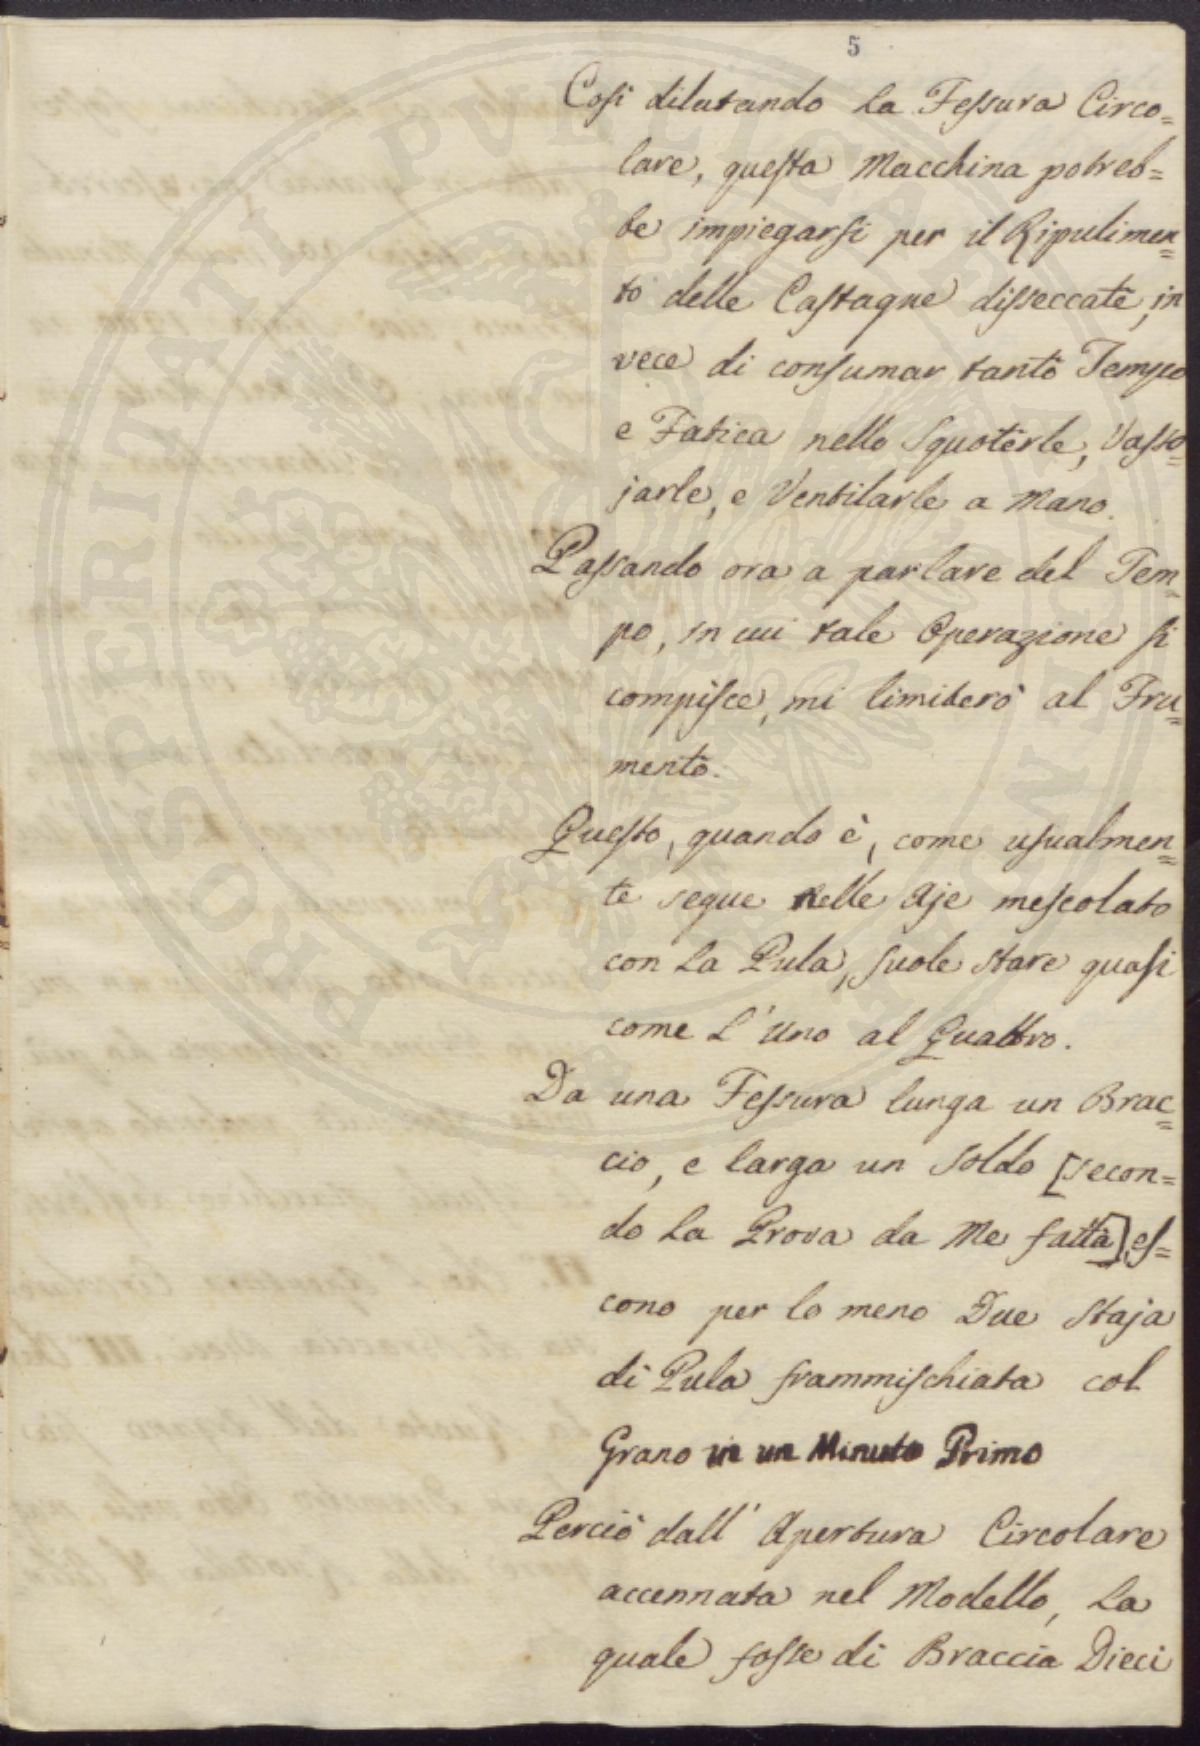 5
Cosi dilatando la Fessura Circo=
lare, questa Macchina potreb=
be impiegarsi per il Ripulimen=
to delle Castagne disseccate, in
vece di consumar tanto Tempo
e Fatica nello Squoterle, Vasso=
jarle, e Ventilarle a Mano.
Passando ora a parlare del Tem=
po, in cui tale Operazione si
compisce, mi limiterò al Fru=
mento.
Questo, quando è, come usualmen=
te segue nelle Aje mescolato
con la Pula, suole stare quasi
come l'Uno al Quattro.
Da una Fessura lunga un Brac=
cio, e larga un Soldo [secon=
do la Prova da Me fatta] es=
cono per lo meno Due Staja
di Pula frammischiata col
Grano in un Minuto Primo
Perciò dall'Apertura Circolare
accennata nel Modello, la
quale fosse di Braccia Dieci
PROSPERITATI PVBLICAE AVGENDAE